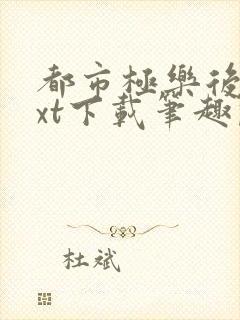 都市極樂後
xt下載筆趣
杜斌